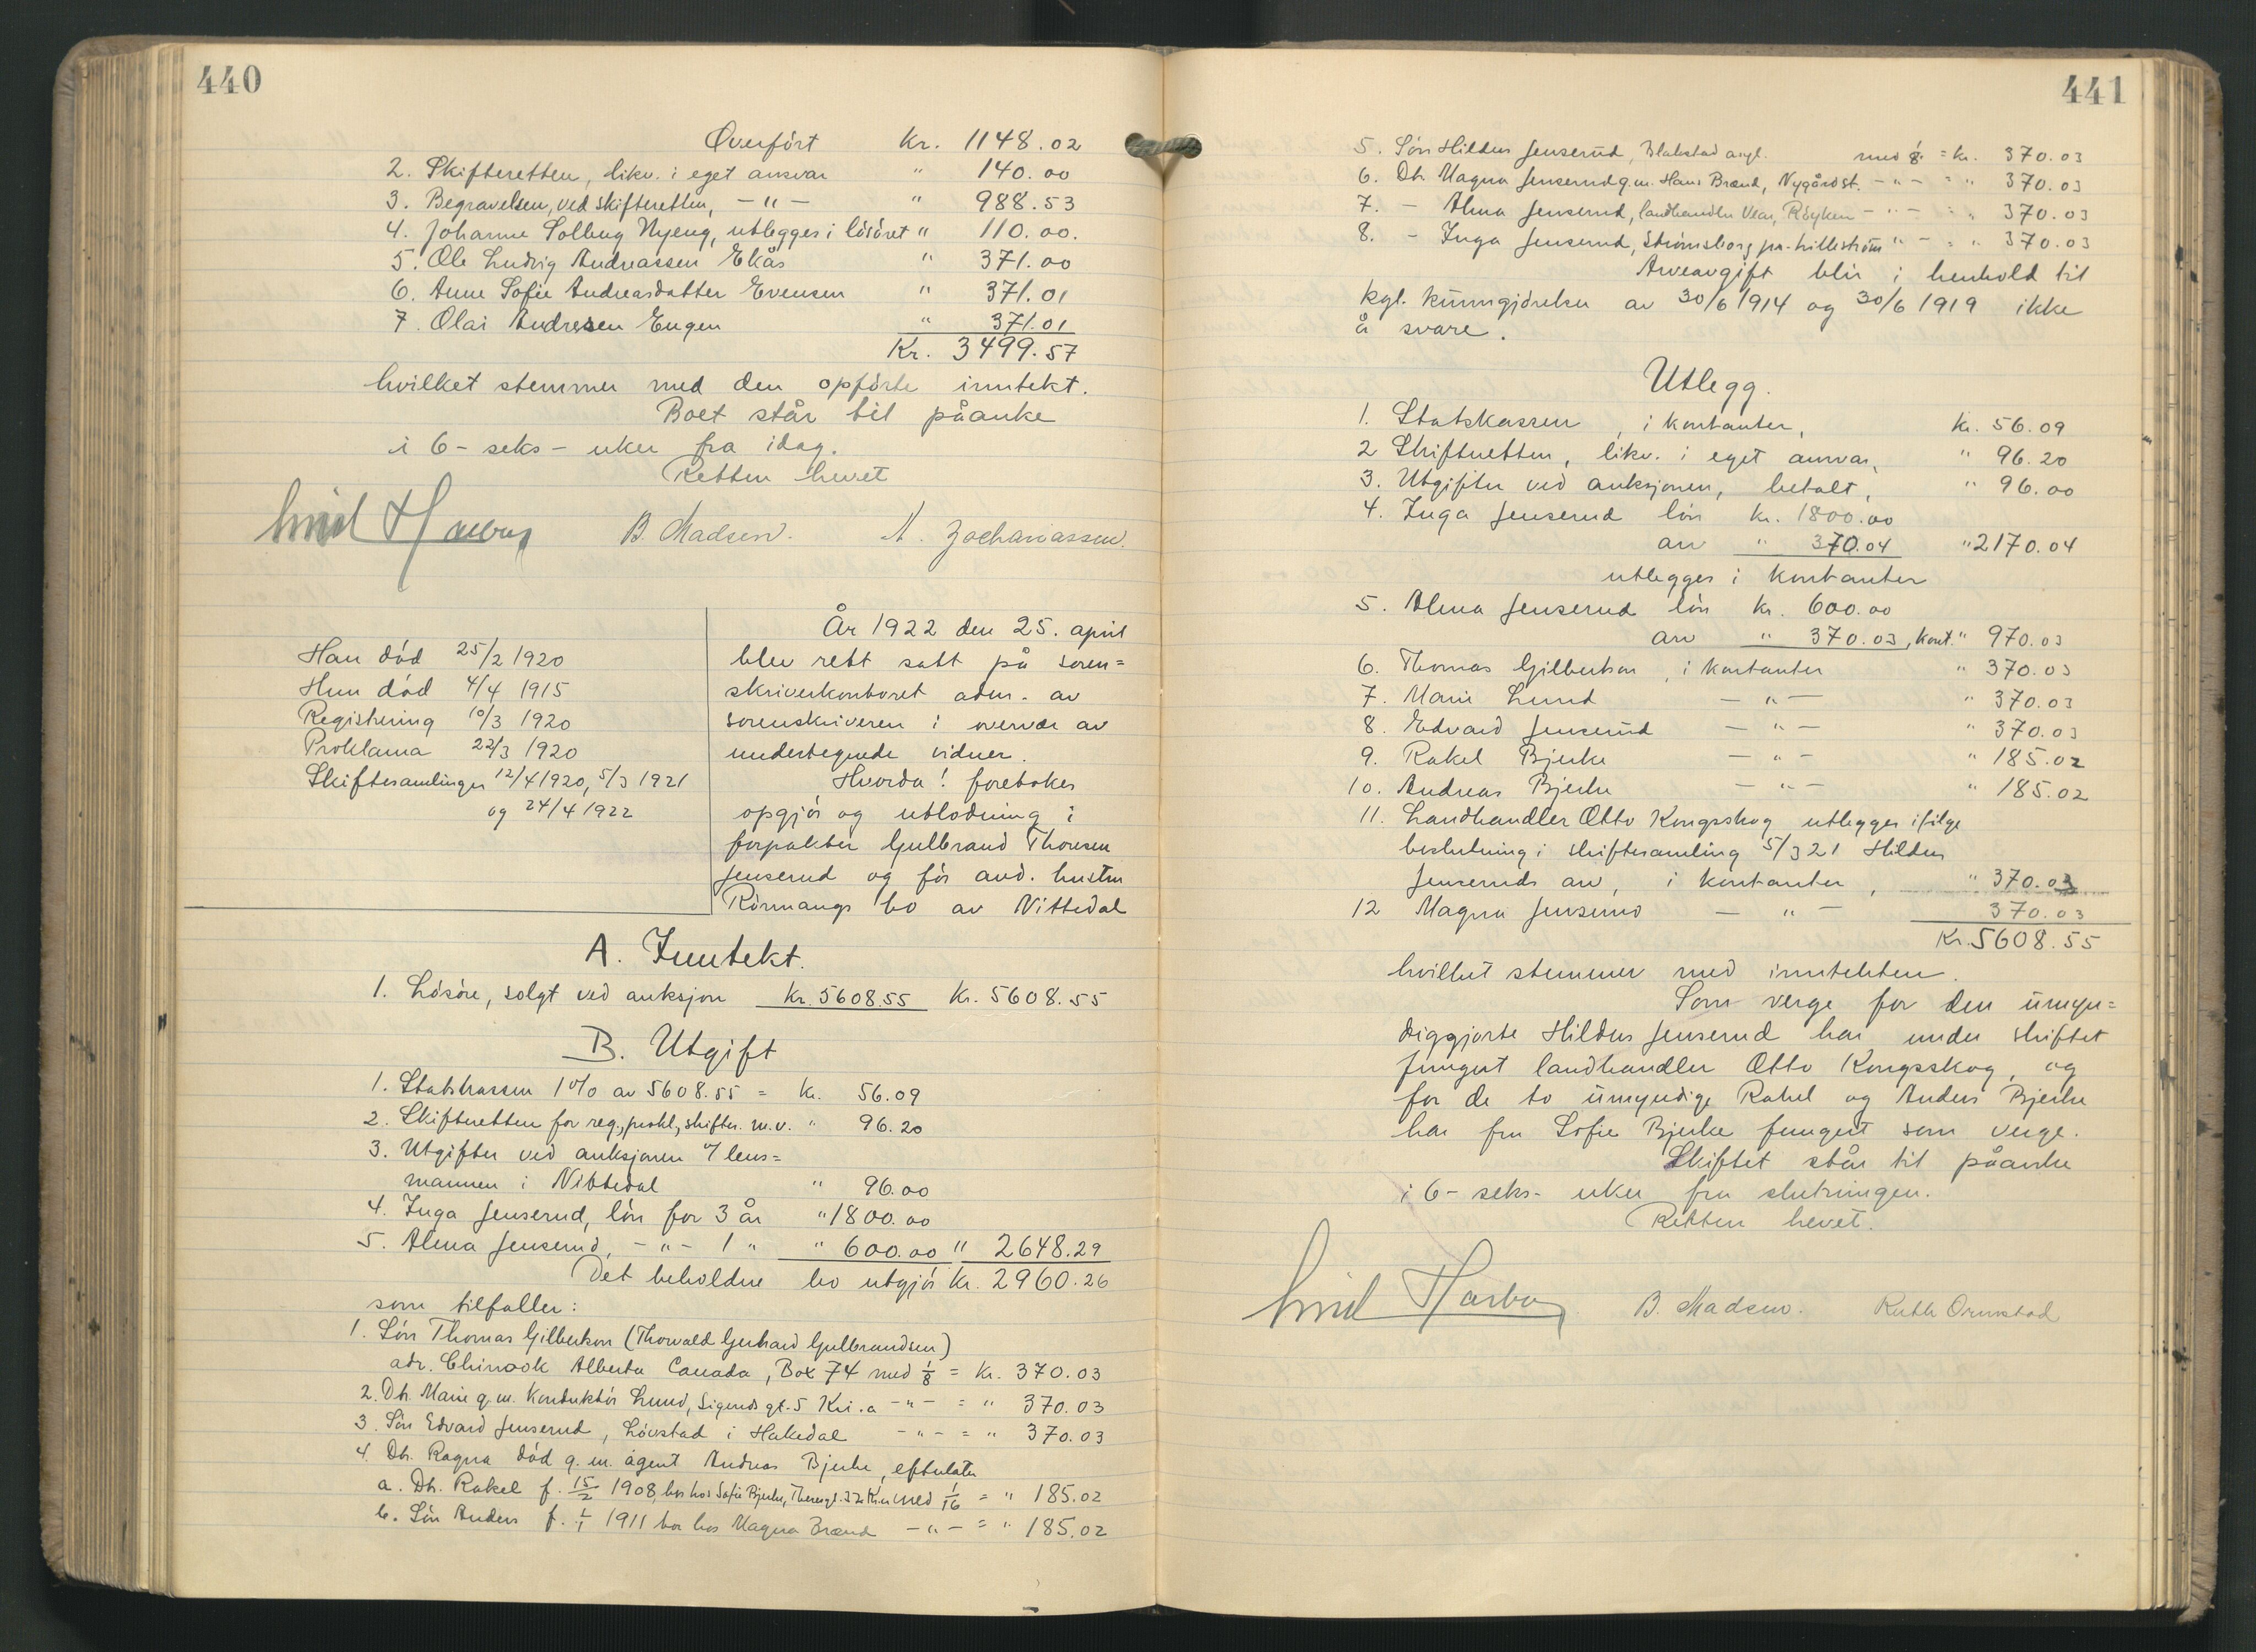 440
Overført Kr. 1148.02
2. Skifteretten, likv. i eget ansvar " 140.00
3. Begravelsen, ved skifteretten, - " - " 988.53
4. Johanne Solberg Nyeng, utlegges i løsøret " 110.00.
5. Ole Ludvig Andreassen Ekås " 371.00
6. Anne Sofie Andreasdatter Evensen " 371.01
7. Olai Andresen Engen " 371.01
Kr. 3499.57
hvilket stemmer med den opførte inntekt.
Boet står til påanke
i 6 - seks - uker fra idag.
Retten hevet
B. Madsen. A. Zachariassen.
Han død 25/2 1920
Hun død 4/4 1915
Registrering 10/3 1920
Proklama 22/3 1920
Skiftesamlinger 12/4 1920, 5/3 1921
og 24/4 1922
År 1922 den 25. april
blev rett satt på soren=
skriverkontoret adm. av
sorenskriveren i overvær av
undertegnede vidner.
Hvorda! foretokes
opgjør og utlodning i
forpakter Gulbrand Thoresen
Jenserud og før avd. hustru
bo av Nittedal
A. Inntekt.
1. Løsøre, solgt ved auksjon Kr. 5608.55 Kr. 5608.55
B. Utgift
1. Statskassen 1% av 5608.55 = Kr. 56.09
2. Skifteretten for reg., prokl., skiftes. m.v. " 96.20
3. Utgifter ved auksjonen v/ lens=
mannen i Nittedal " 96.00
4. Inga Jenserud, løn for 3 år " 1800.00
5. Alma Jenserud, - " - 1 " " 600.00 " 2648.29
Det beholdne bo utgjør Kr. 2960.26
som tilfaller:
1. Søn Thomas Gilbertson (Thorvald Gerhard Gulbrandsen)
adr. Chinook Alberta Canada, Box 74 med 1/8 = Kr. 370.03
2. Dtr. Marie g.m. Konduktør Lund, Sigurds gt. 5 Kr.a - " - = " 370.03
3. Søn Edvard Jenserud, Løvstad i Hakedal - " - = " 370.03
4. Dtr. Ragna død g.m. agent Andreas Bjerke, efterlater
a. Dtr. Rakel f. 15/2 1908, bor hos Sofie Bjerke, med 1/16 = " 185.02
b. Søn Anders f. 1/1 1911 bor hos Magna Brænd - " - = " 185.02
441
5. Søn Hildus Jenserud, Blakstad asyl. med 1/8 = kr. 370.03
6. Dtr. Magna Jenserud g.m. Hans Brænd, Nygård st. - " - = " 370.03
7. - Alma Jenserud, landhandler Vear, Røyken - " - = " 370.03
8. - Inga Jenserud, Strømsborg pr. Lillestrøm " - = " 370.03
Arveavgift blir i henhold til
kgl. kunngjørelser av 30/6 1914 og 30/6 1919 ikke
å svare.
Utlegg.
1. Statskassen, i kontanter, Kr. 56.09
2 Skifteretten, likv. i eget ansvar, " 96.20
3. Utgifter ved auksjonen, betalt, " 96.00
4. Inga Jenserud løn kr. 1800.00
arv " 370.04 " 2170.04
utlegges i kontanter
5. Alma Jenserud løn kr. 600.00
arv " 370.03, kont. " 970.03
6. Thomas Gilbertson, i kontanter " 370.03
7. Marie Lund - " - " 370.03
8. Edvard Jenserud - " - " 370.03
9. Rakel Bjerke - " - " 185.02
10. Andreas Bjerke - " - " 185.02
11. Landhandler Otto Kongsskog utlegges ifølge
beslutning i skiftesamling 5/3 21 Hildus
Jenseruds arv, i kontanter, " 370.03
12 Magna Jenserud - " - 370.03
Kr. 5608.55
hvilket stemmer med inntekten.
Som verge for den umyn=
diggjorte Hildus Jenserud har under skiftet
fungert landhandler Otto Kongsskog, og
for de to umyndige Rakel og Anders Bjerke
har fru Sofie Bjerke fungert som verge.
Skiftet står til påanke
i 6 - seks - uker fra slutningen.
Retten hevet.
B. Madsen. Ruth Ormstad